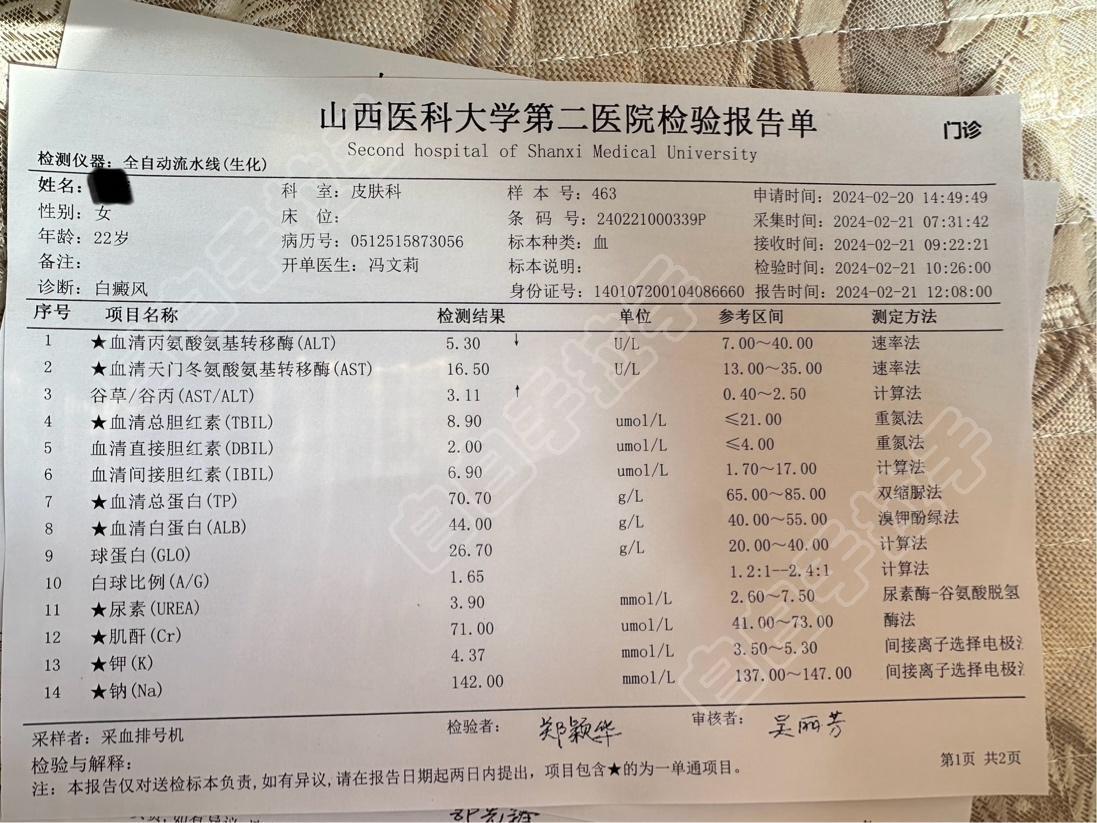 山西医科大学第二医院检验报告单
门诊
Second hospital of Shanxi Medical University
检测仪器：全自动流水线(生化)
姓名： 科 室：皮肤科 样 本 号：463 申请时间：2024-02-20 14:49:49
性别：女 床 位： 条 码 号：240221000339P 采集时间：2024-02-21 07:31:42
年龄：22岁 病历号：0512515873056 标本种类：血 接收时间：2024-02-21 09:22:21
备注： 开单医生：冯文莉 标本说明： 检验时间：2024-02-21 10:26:00
诊断：白癜风 身份证号：140107200104086660 报告时间：2024-02-21 12:08:00
序号 项目名称 检测结果 单位 参考区间 测定方法
1 ★血清丙氨酸氨基转移酶(ALT) 5.30 ↓ U/L 7.00～40.00 速率法
2 ★血清天门冬氨酸氨基转移酶(AST) 16.50 U/L 13.00～35.00 速率法
3 谷草/谷丙(AST/ALT) 3.11 ↑ 0.40～2.50 计算法
4 ★血清总胆红素(TBIL) 8.90 umol/L ≤21.00 重氮法
5 血清直接胆红素(DBIL) 2.00 umol/L ≤4.00 重氮法
6 血清间接胆红素(IBIL) 6.90 umol/L 1.70～17.00 计算法
7 ★血清总蛋白(TP) 70.70 g/L 65.00～85.00 双缩脲法
8 ★血清白蛋白(ALB) 44.00 g/L 40.00～55.00 溴钾酚绿法
9 球蛋白(GLO) 26.70 g/L 20.00～40.00 计算法
10 白球比例(A/G) 1.65 1.2:1--2.4:1 计算法
11 ★尿素(UREA) 3.90 mmol/L 2.60～7.50 尿素酶-谷氨酸脱氢
12 ★肌酐(Cr) 71.00 umol/L 41.00～73.00 酶法
13 ★钾(K) 4.37 mmol/L 3.50～5.30 间接离子选择电极
14 ★钠(Na) 142.00 mmol/L 137.00～147.00 间接离子选择电极
采样者：采血排号机 检验者：郑颖华 审核者：吴丽芳
检验与解释：
注：本报告仅对送检标本负责,如有异议,请在报告日期起两日内提出，项目包含★的为一单通项目。
第1页 共2页